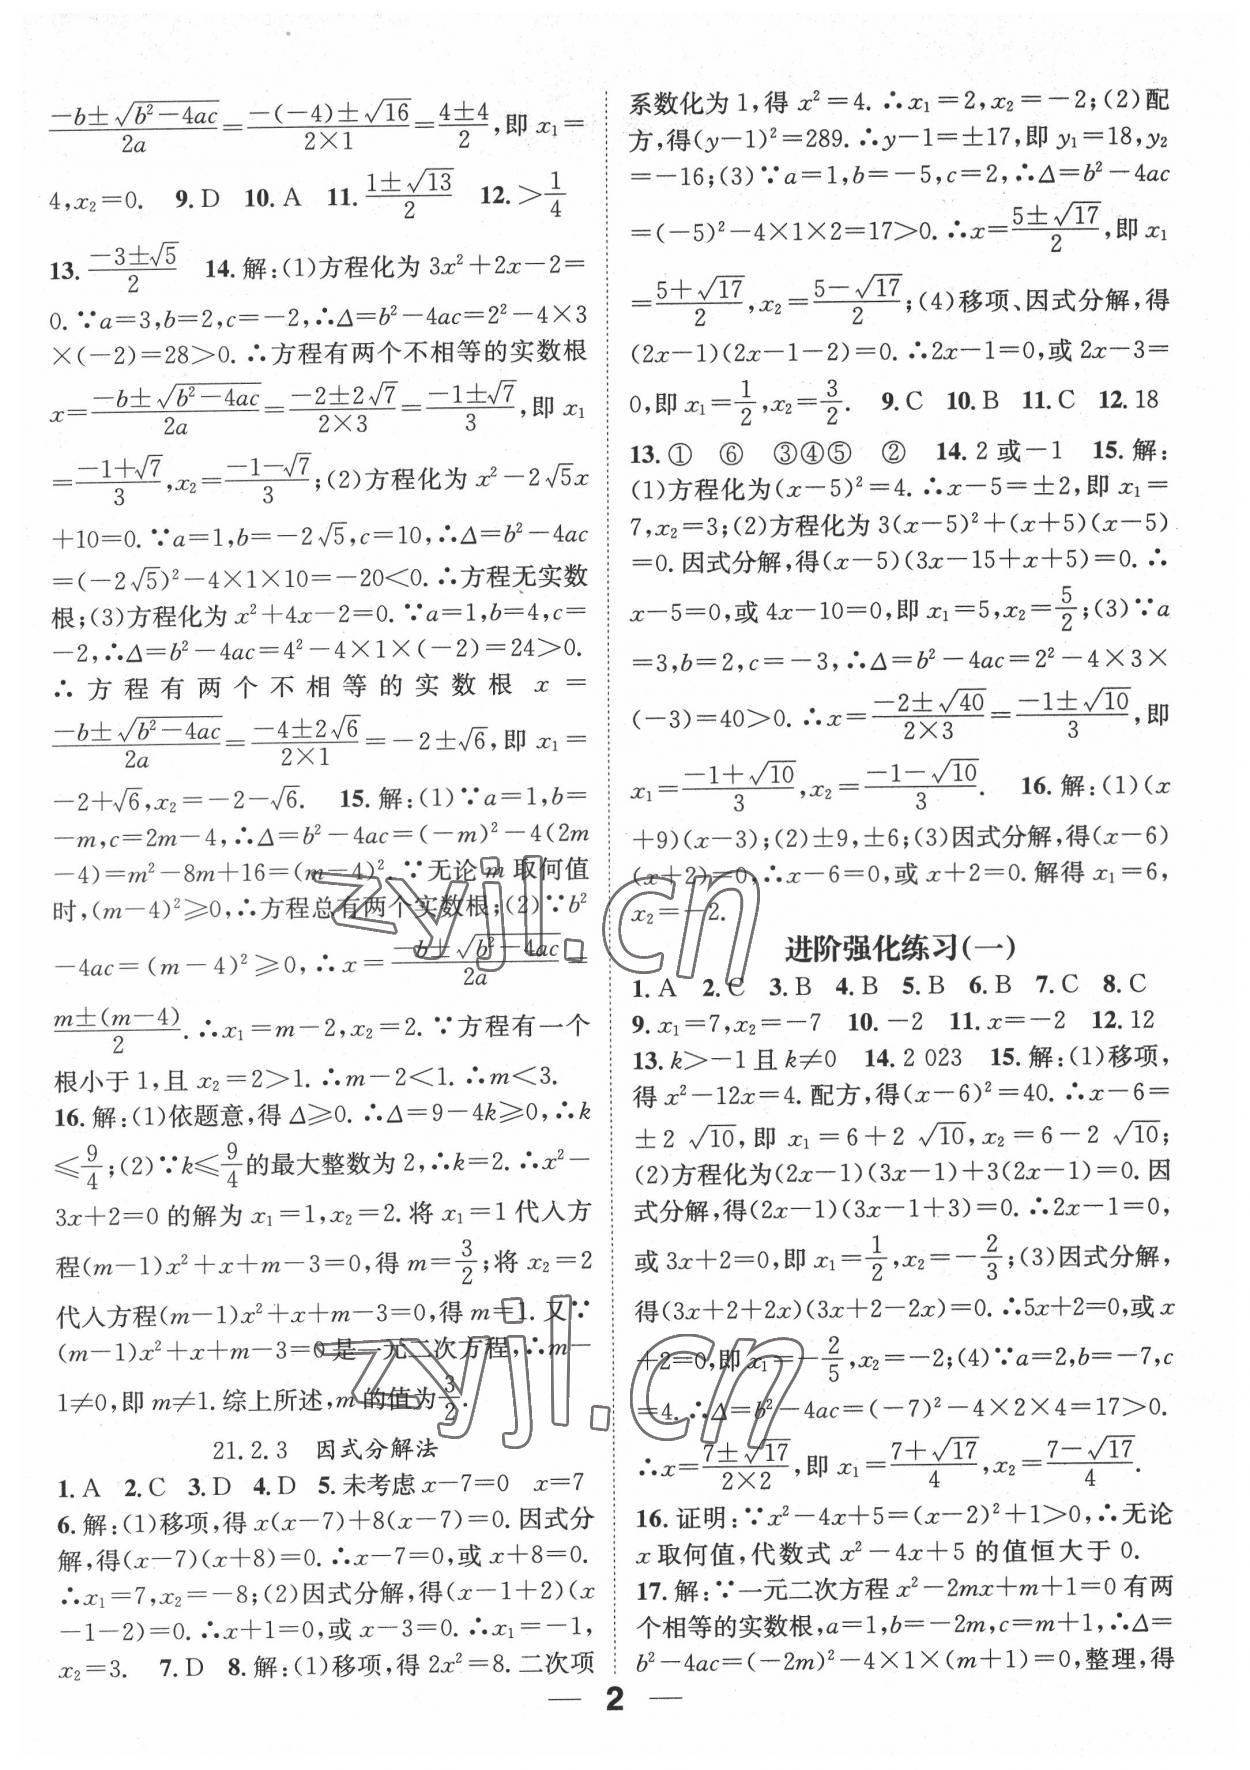 \frac{-b±\sqrt{b²-4ac}}{2a}=\frac{-(-4)±\sqrt{16}}{2×1}=\frac{4±4}{2},即 x₁=
4,x₂=0. 9.D 10.A 11.\frac{1±\sqrt{13}}{2} 12.>\frac{1}{4}
13.\frac{-3±\sqrt{5}}{2} 14.解:(1)方程化为 3x²+2x-2=
0.∵a=3,b=2,c=-2,∴Δ=b²-4ac=2²-4×3
×(-2)=28>0.∴方程有两个不相等的实数根
x=\frac{-b±\sqrt{b²-4ac}}{2a}=\frac{-2±2\sqrt{7}}{2×3}=\frac{-1±\sqrt{7}}{3},即 x₁
=\frac{-1+\sqrt{7}}{3},x₂=\frac{-1-\sqrt{7}}{3};(2)方程化为 x²-2\sqrt{5}x
+10=0.∵a=1,b=-2\sqrt{5},c=10,∴Δ=b²-4ac
=(-2\sqrt{5})²-4×1×10=-20<0.∴方程无实数
根;(3)方程化为 x²+4x-2=0.∵a=1,b=4,c=
-2,∴Δ=b²-4ac=4²-4×1×(-2)=24>0.
∴方程有两个不相等的实数根 x=
\frac{-b±\sqrt{b²-4ac}}{2a}=\frac{-4±2\sqrt{6}}{2×1}=-2±\sqrt{6},即 x₁=
-2+\sqrt{6},x₂=-2-\sqrt{6}. 15.解:(1)∵a=1,b=
-m,c=2m-4,∴Δ=b²-4ac=(-m)²-4(2m
-4)=m²-8m+16=(m-4)².∵无论 m 取何值
时,(m-4)²≥0,∴方程总有两个实数根;(2)∵b²
-4ac=(m-4)²≥0,∴x=\frac{-b±\sqrt{b²-4ac}}{2a}=
\frac{m±(m-4)}{2}.∴x₁=m-2,x₂=2.∵方程有一个
根小于 1,且 x₂=2>1.∴m-2<1.∴m<3.
16.解:(1)依题意,得 Δ≥0.∴Δ=9-4k≥0,∴k
≤\frac{9}{4};(2)∵k≤\frac{9}{4}的最大整数为 2,∴k=2.∴x²-
3x+2=0 的解为 x₁=1,x₂=2.将 x₁=1 代入方
程(m-1)x²+x+m-3=0,得 m=\frac{3}{2};将 x₂=2
代入方程(m-1)x²+x+m-3=0,得 m=1.又∵
(m-1)x²+x+m-3=0 是一元二次方程,∴m-
1≠0,即 m≠1.综上所述,m 的值为\frac{3}{2}.
21.2.3 因式分解法
1.A 2.C 3.D 4.D 5.未考虑 x-7=0 x=7
6.解:(1)移项,得 x(x-7)+8(x-7)=0.因式分
解,得(x-7)(x+8)=0.∴x-7=0,或 x+8=0.
∴x₁=7,x₂=-8;(2)因式分解,得(x-1+2)(x
-1-2)=0.∴x+1=0,或 x-3=0.∴x₁=-1,
x₂=3. 7.D 8.解:(1)移项,得 2x²=8.二次项
系数化为 1,得 x²=4.∴x₁=2,x₂=-2;(2)配
方,得(y-1)²=289.∴y-1=±17,即 y₁=18,y₂
=-16;(3)∵a=1,b=-5,c=2,∴Δ=b²-4ac
=(-5)²-4×1×2=17>0.∴x=\frac{5±\sqrt{17}}{2},即 x₁
=\frac{5+\sqrt{17}}{2},x₂=\frac{5-\sqrt{17}}{2};(4)移项、因式分解,得
(2x-1)(2x-1-2)=0.∴2x-1=0,或 2x-3=
0,即 x₁=\frac{1}{2},x₂=\frac{3}{2}. 9.C 10.B 11.C 12.18
13.① ⑥ ③④⑤ ② 14.2 或-1 15.解:
(1)方程化为(x-5)²=4.∴x-5=±2,即 x₁=
7,x₂=3;(2)方程化为 3(x-5)²+(x+5)(x-5)
=0.因式分解,得(x-5)(3x-15+x+5)=0.∴
x-5=0,或 4x-10=0,即 x₁=5,x₂=\frac{5}{2};(3)∵a
=3,b=2,c=-3,∴Δ=b²-4ac=2²-4×3×
(-3)=40>0.∴x=\frac{-2±\sqrt{40}}{2×3}=\frac{-1±\sqrt{10}}{3},即
x₁=\frac{-1+\sqrt{10}}{3},x₂=\frac{-1-\sqrt{10}}{3}. 16.解:(1)(x
+9)(x-3);(2)±9,±6;(3)因式分解,得(x-6)
(x+2)=0,∴x-6=0,或 x+2=0.解得 x₁=6,
x₂=-2.
进阶强化练习(一)
1.A 2.C 3.B 4.B 5.B 6.B 7.C 8.C
9.x₁=7,x₂=-7 10.-2 11.x=-2 12.12
13.k>-1 且 k≠0 14.2 023 15.解:(1)移项,
得 x²-12x=4.配方,得(x-6)²=40.∴x-6=
±2\sqrt{10},即 x₁=6+2\sqrt{10},x₂=6-2\sqrt{10};
(2)方程化为(2x-1)(3x-1)+3(2x-1)=0.因
式分解,得(2x-1)(3x-1+3)=0.∴2x-1=0,
或 3x+2=0,即 x₁=\frac{1}{2},x₂=-\frac{2}{3};(3)因式分解,
得(3x+2+2x)(3x+2-2x)=0.∴5x+2=0,或 x
+2=0,即 x₁=-\frac{2}{5},x₂=-2;(4)∵a=2,b=-7,c
=4.∴Δ=b²-4ac=(-7)²-4×2×4=17>0.
∴x=\frac{7±\sqrt{17}}{2×2},即 x₁=\frac{7+\sqrt{17}}{4},x₂=\frac{7-\sqrt{17}}{4}.
16.证明:∵x²-4x+5=(x-2)²+1>0,∴无论
x 取何值,代数式 x²-4x+5 的值恒大于 0.
17.解:∵一元二次方程 x²-2mx+m+1=0 有两
个相等的实数根,a=1,b=-2m,c=m+1,∴Δ=
b²-4ac=(-2m)²-4×1×(m+1)=0,整理,得
— 2 —
zyjl.cn
zyjl.cn